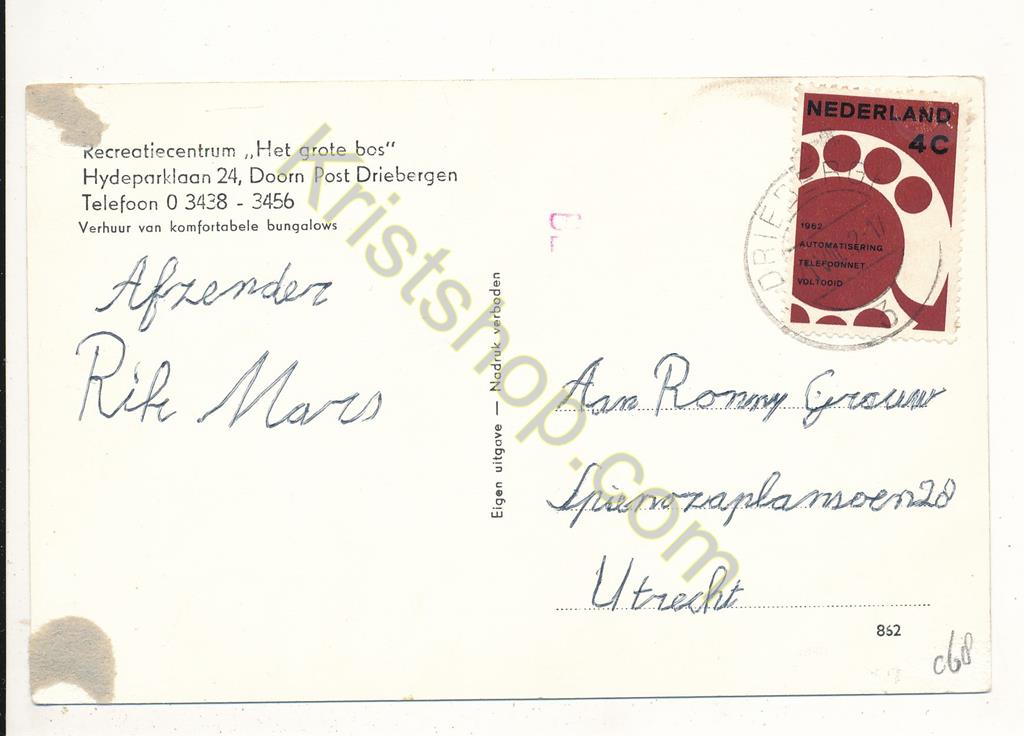 Recreatiecentrum „Het grote bos"
Hydeparklaan 24, Doorn Post Driebergen
Telefoon 0 3438 - 3456
Verhuur van komfortabele bungalows
Afzender
Rik Mars
Eigen uitgave — Nadruk verboden
NEDERLAND
4C
1962
AUTOMATISERING
TELEFOONNET
VOLTOOID
DRIEBERG
3
Aan Ronny Grouw
Spienozaplansoen 28
Utrecht
862
c68
Kristshop.com